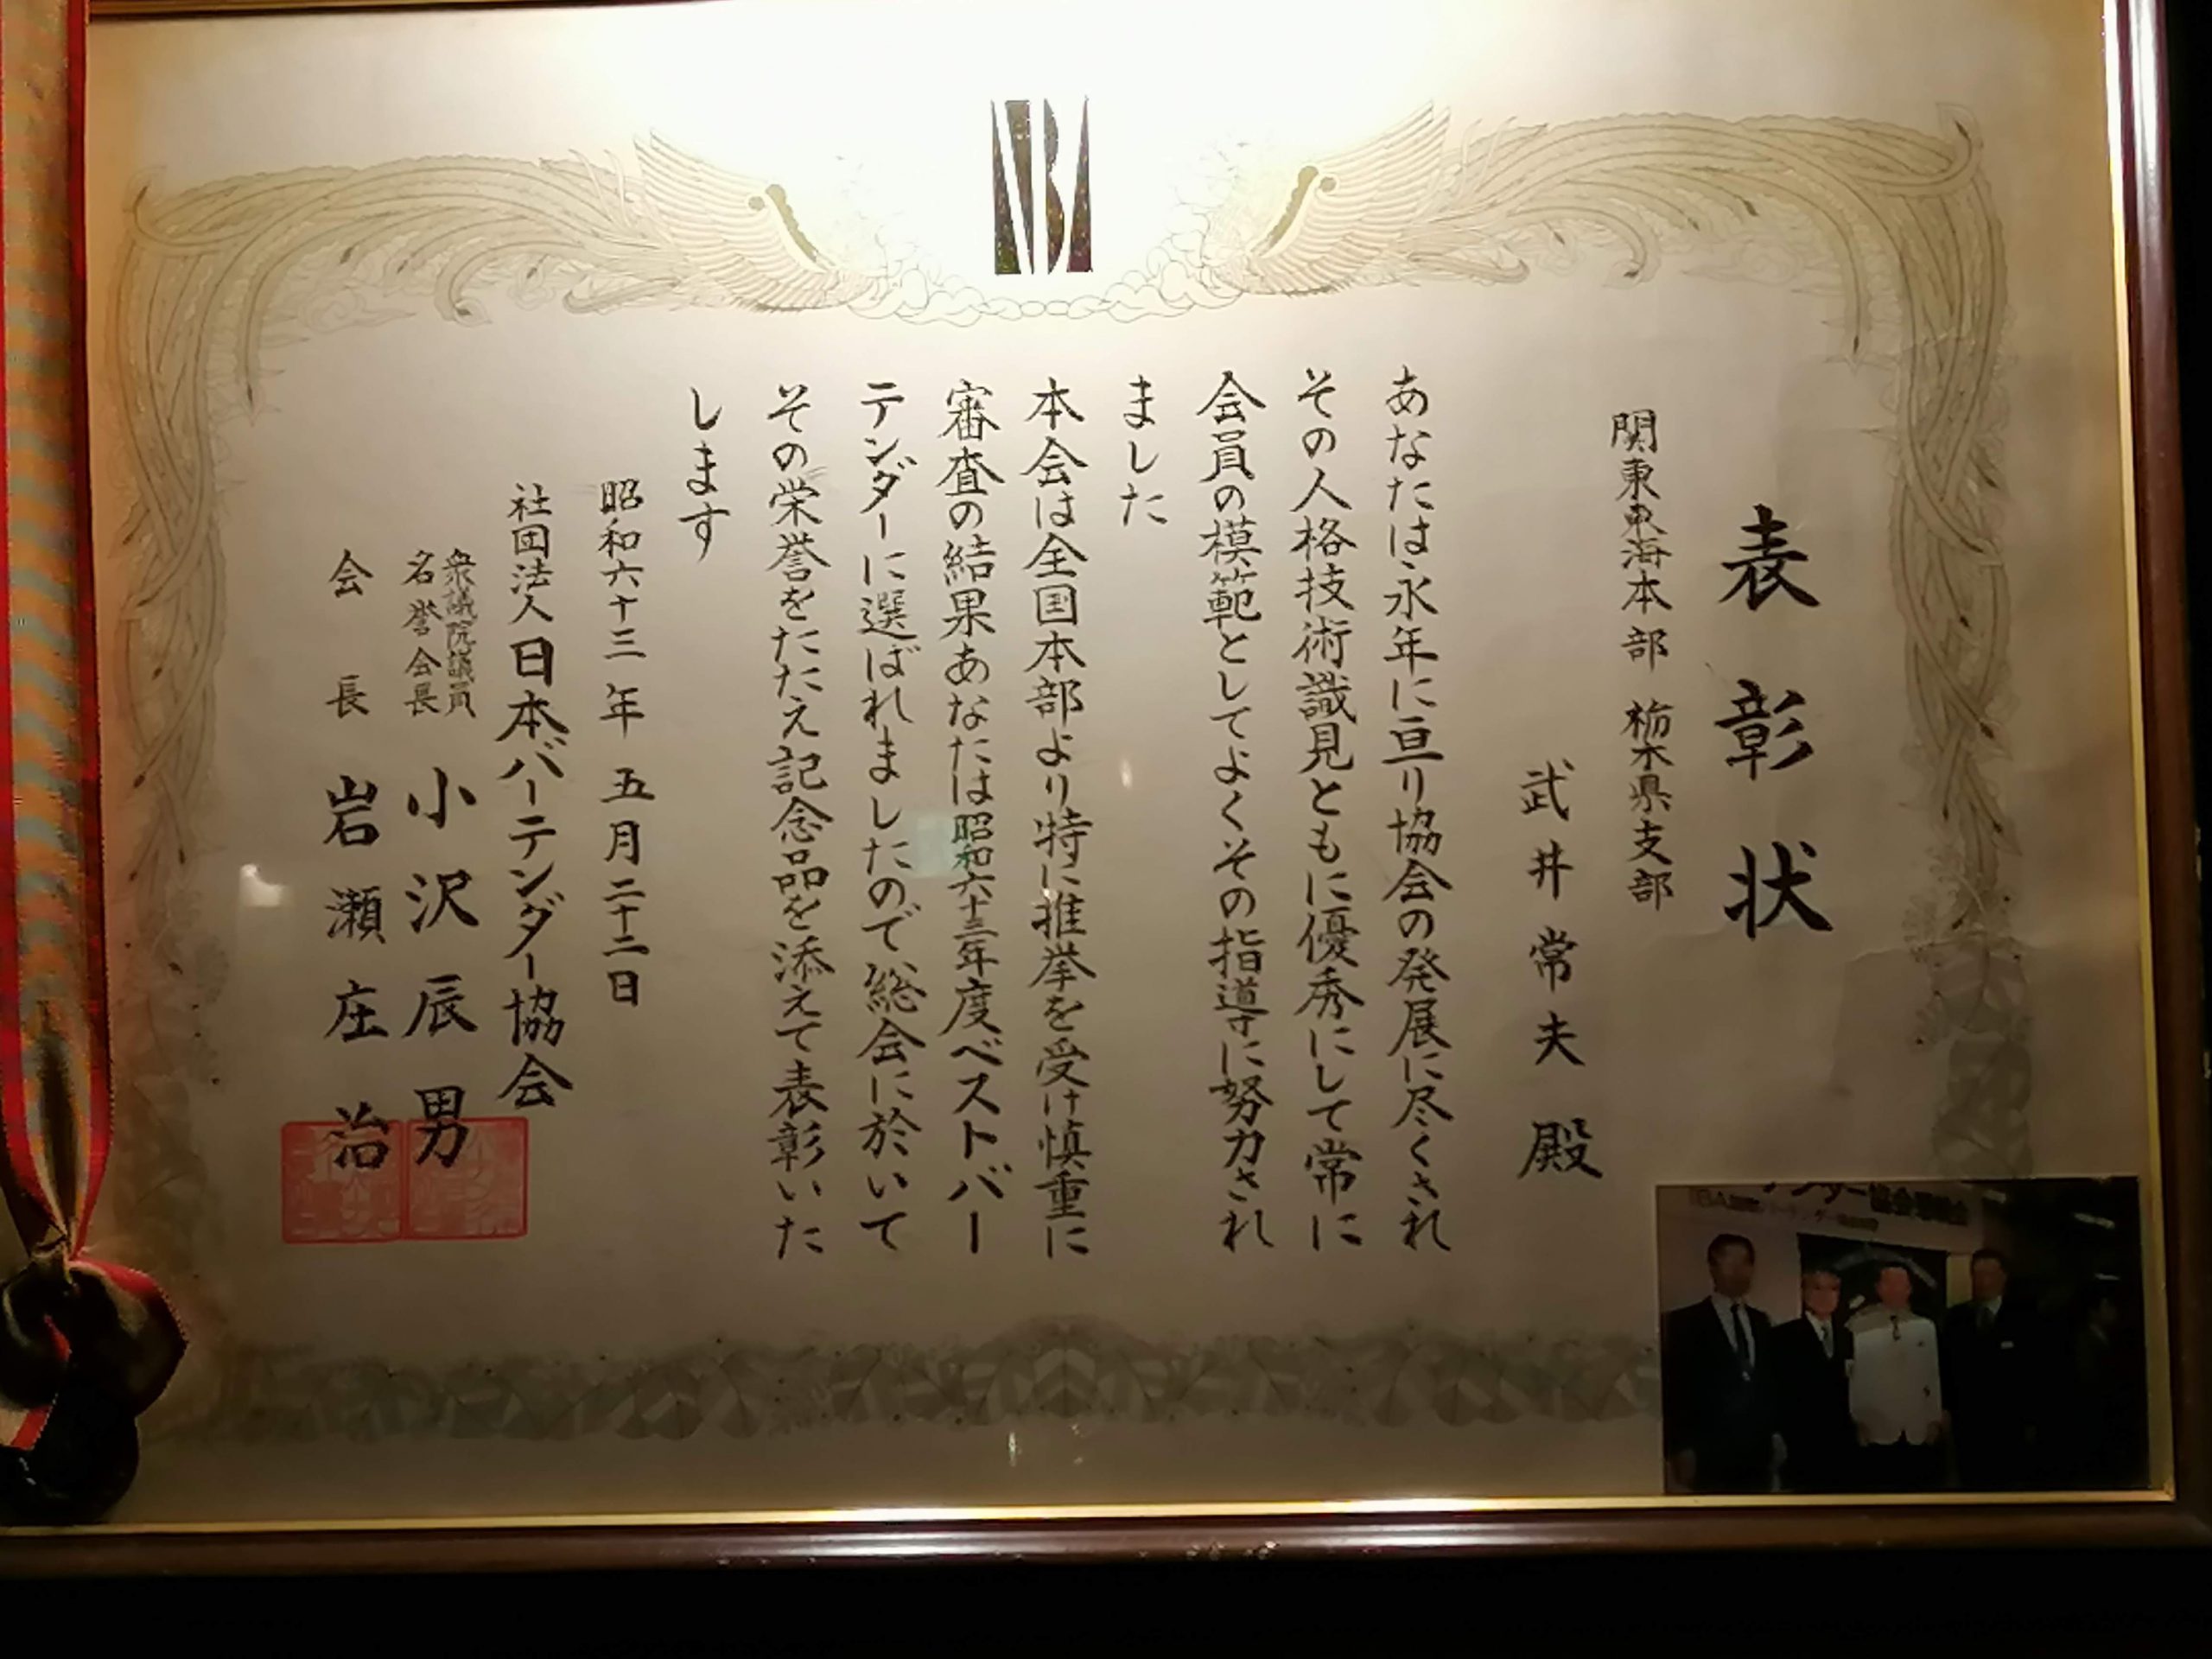 NBA
表彰状
関東東海本部 栃木県支部
武井常夫殿
あなたは永年に亘り協会の発展に尽くされ
その人格技術識見ともに優秀にして常に
会員の模範としてよくその指導に努力され
ました
本会は全国本部より特に推挙を受け慎重に
審査の結果あなたは昭和六十三年度ベストバー
テンダーに選ばれましたので総会に於いて
その栄誉をたたえ記念品を添えて表彰いた
します
昭和六十三年 五月二十二日
社団法人日本バーテンダー協会
衆議院議員
名誉会長 小沢辰男
会長 岩瀬庄治